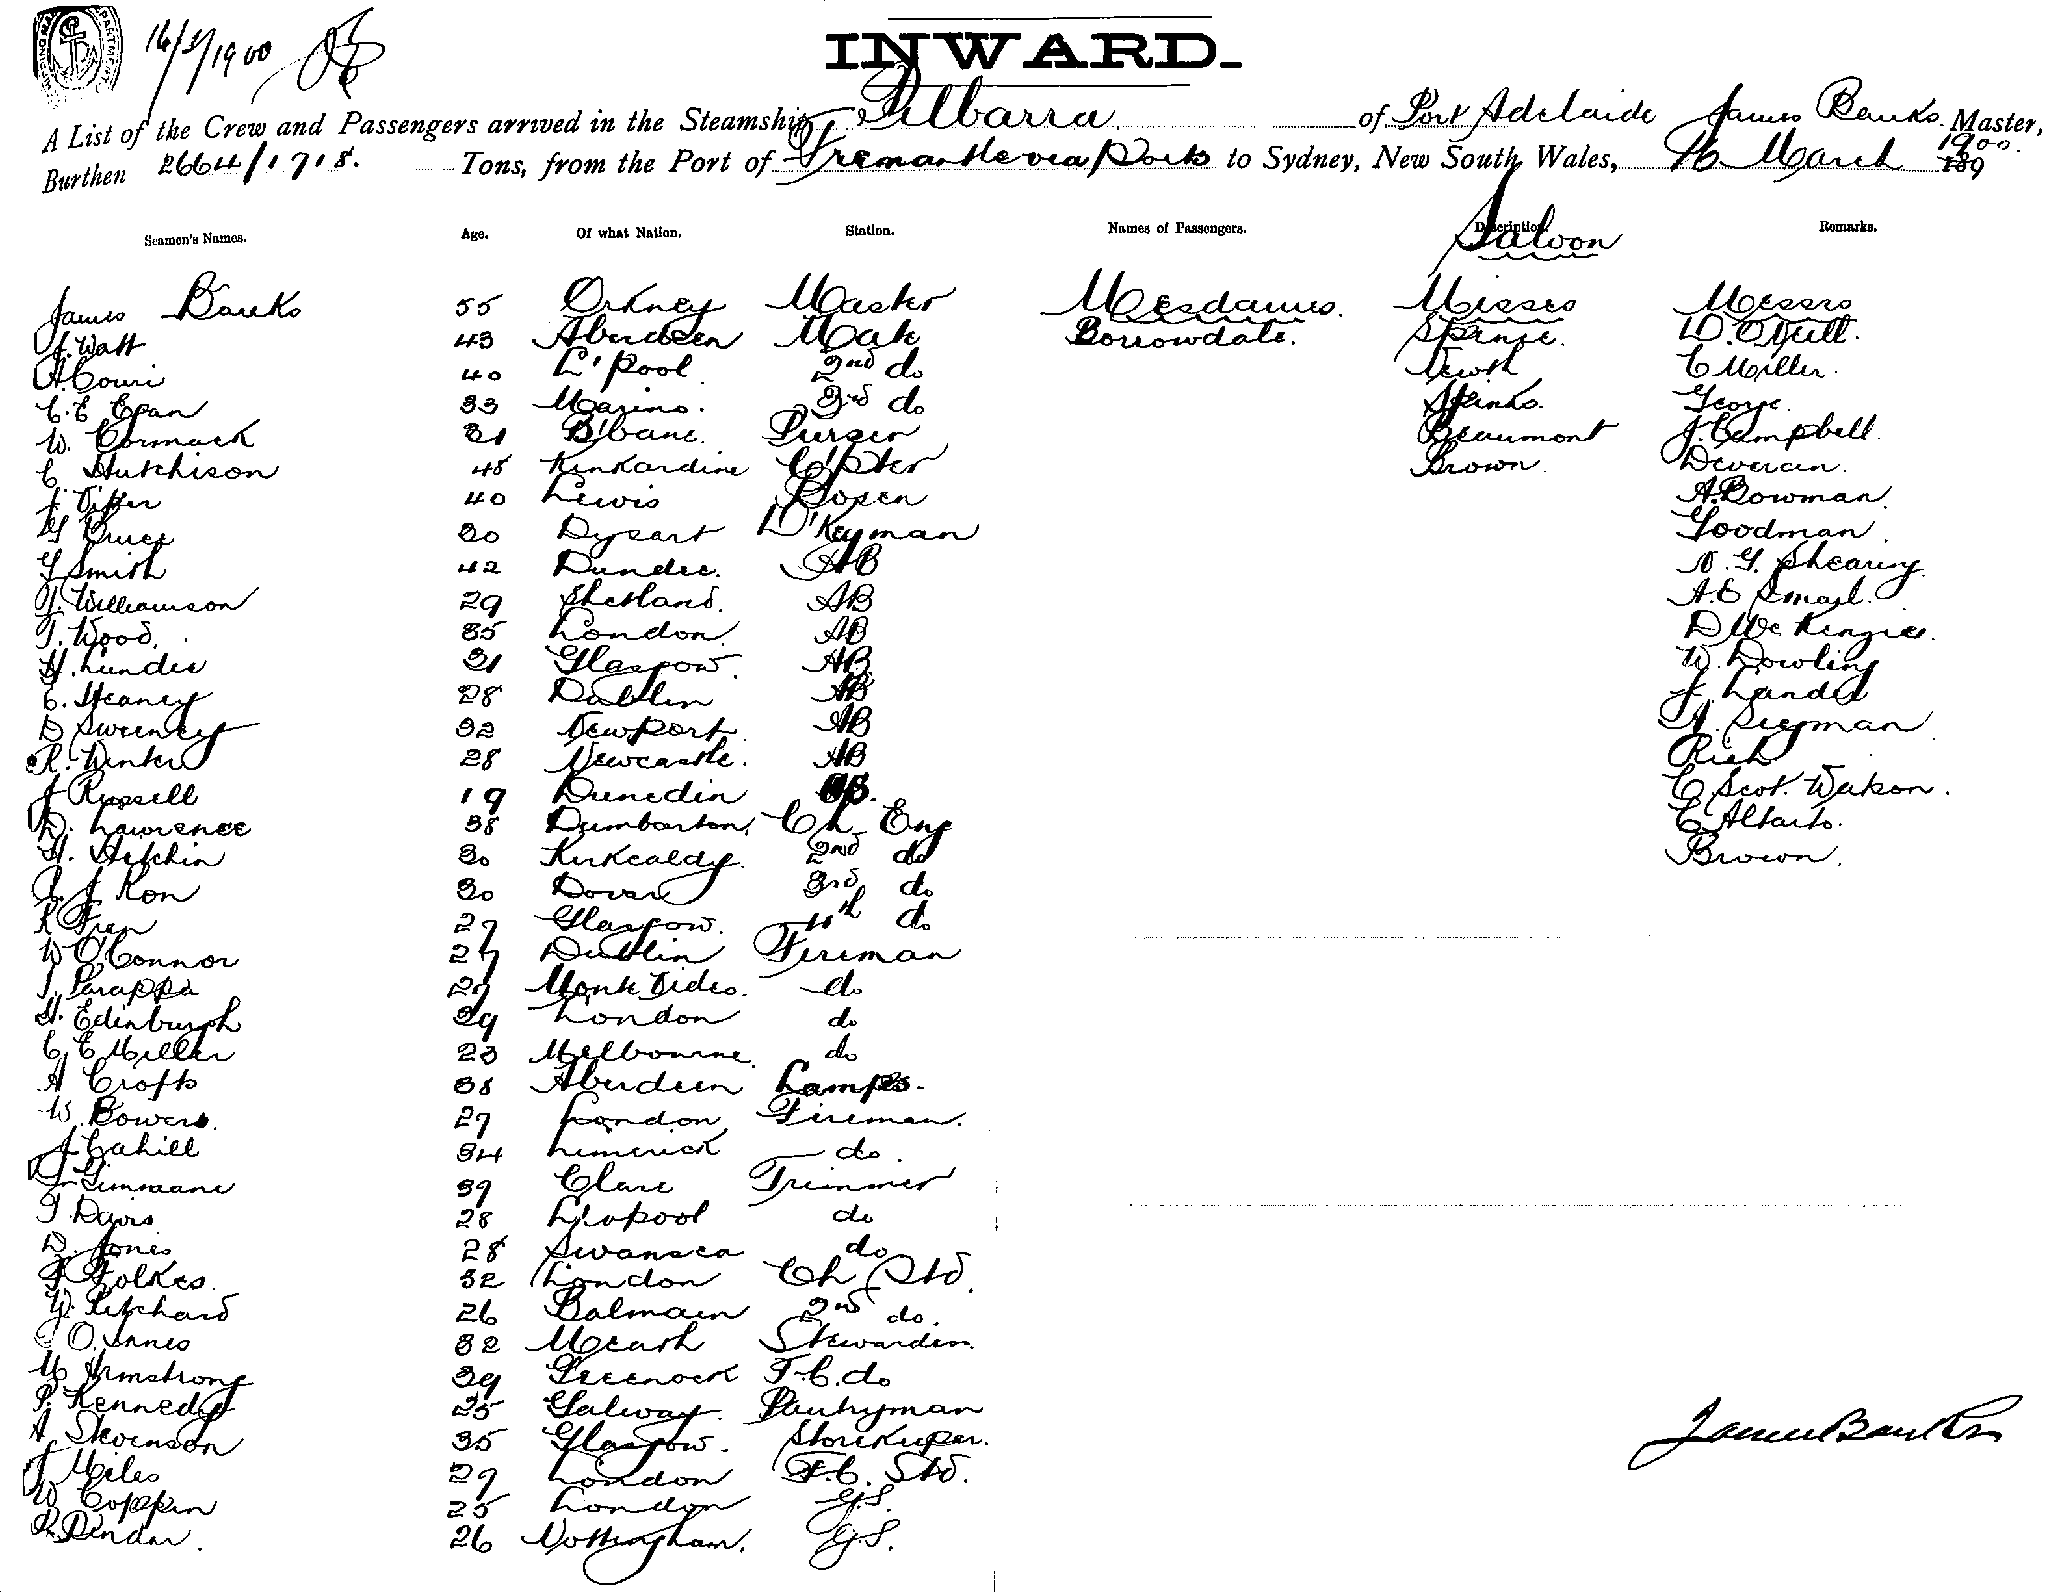 16/3/1900
INWARD.
A List of the Crew and Passengers arrived in the Steamship Pilbarra of Port Adelaide James Banks Master,
Burthen 2664/1718. Tons, from the Port of Fremantle via ports to Sydney, New South Wales, 16 March 1900. 189
Seamen's Names. Age. Of what Nation. Station. Names of Passengers. Description. Remarks.
Saloon
James Banks 55 Orkney Master Mesdames. Misses Messrs
J. Watt 43 Aberdeen Mate Borrowdale. Spense. D. O'Neill.
A. Couri 40 L'pool 2nd do Newth C Miller.
C. E Egan 33 Marino. 3rd do Spinks. George.
W. Cormack 31 B'bane. Purser Beaumont J. Campbell.
C. Hutchison 48 Kinkardine C'pter Brown. Deverein.
J. 40 Lewis Bosen A. Bowman.
G Bruce 30 Dysart D'Keyman Goodman.
G Smith 42 Dundee. AB N. G. Shearing.
J. Williamson 29 Shetland. AB A. E Small.
T. Wood. 35 London. AB D McKenzie.
H. Lundie 31 Glasgow. AB W. Dowling
C. Heaney 28 Dublin AB J. Lander
D Sweeney 32 Newport. AB A. Siegman
R. Winter 28 Newcastle. AB Rich
J Russell 19 Dunedin OS. C Scot. Watson.
D. Lawrence 38 Dumbarton. Ch Eng C Altarto.
H. Hitchin 30 Kirkcaldy. 2nd do Brown.
J. J Ron 30 Dover 3rd do
R 27 Glasgow. 4th do
W O'Connor 27 Dublin Fireman
J. Parappa 27 Monte Video. do
H. Edinburgh 39 London do
C. E Miller 23 Melbourne do
A Crofts 38 Aberdeen Lamps.
W. Bowers. 27 London Fireman.
J Cahill 34 Limerick do.
J Timmane 39 Clare Trimmer
T Davis 28 Livpool do
D. Jones 28 Swansea do
F Folkes. 32 London Ch Std.
W. Pitchard 26 Balmain 2nd do.
O. Innes 32 Meath Stewardess.
M Armstrong 39 Greenock F.C. do
P. Kennedy 25 Galway. Pantryman
A Stevenson 35 Glasgow. Storekeeper.
J Miles 27 London F.C. Std.
W Coppin 25 London G.S.
R. Dendar. 26 Nottingham. G.S.
James Banks